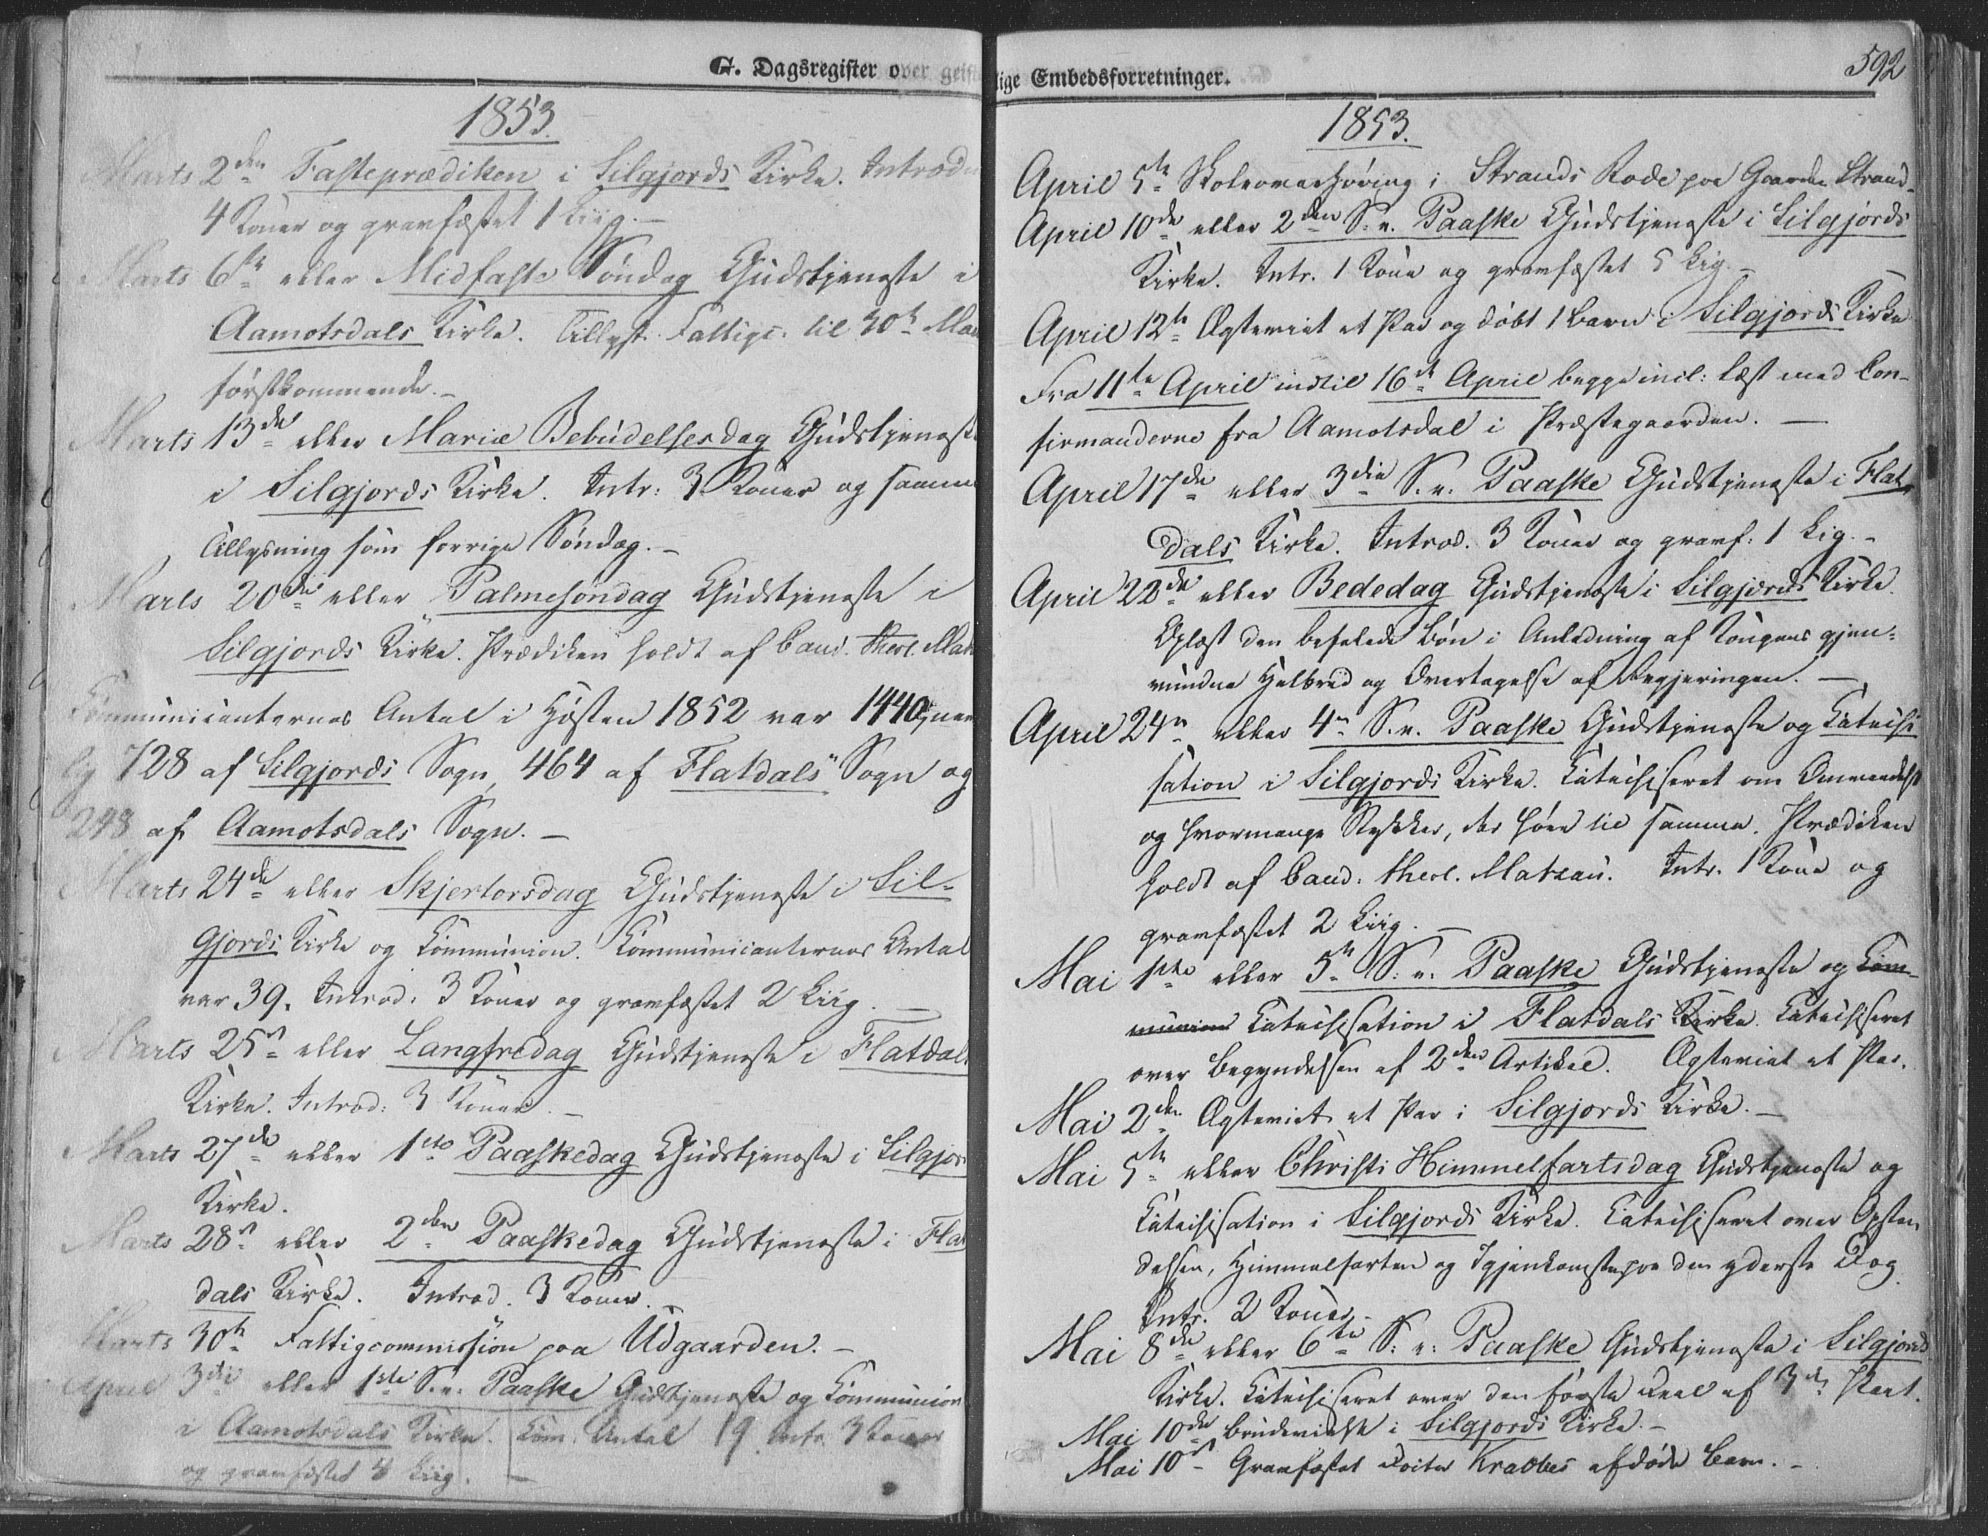 G. Dagsregister over geist
1853.
Marts 2den Fasteprædiken i Silgjords Kirke. Introd
4 Koner og gravfæstet 1 Liig. —
Marts 6te eller Midfaste Søndag Gudstjeneste i
Aamotsdals Kirke. Tillyst Fattigc. til 30te Mar
førstkommende. —
Marts 13de eller Mariæ Bebudelsesdag Gudstjenest
i Silgjords Kirke. Intr: 3 Koner og samme
Tillysning som forrige Søndag. —
Marts 20de eller Palmesøndag Gudstjeneste i
Silgjords Kirke. Prædiken holdt af Cand. theol. Mat
Communicanternes Antal i Høsten 1852 var 1440, nem
lig 728 af Silgjords Sogn, 464 af Flatdals Sogn og
248 af Aamotsdals Sogn. —
Marts 24de eller Skjertorsdag Gudstjeneste i Sil-
gjords Kirke og Communion. Communicanternes Antal
var 39. Introd: 3 Koner og gravfæstet 2 Liig. —
Marts 25de eller Langfredag Gudstjeneste i Flatdals
Kirke. Introd: 3 Koner. —
Marts 27de eller 1ste Paaskedag Gudstjeneste i Silgjor
Kirke.
Marts 28de eller 2den Paaskedag Gudstjeneste i Flat
dals Kirke. Introd. 3 Koner.
Marts 30te Fattigcommission paa Udgaarden. —
April 3die eller 1ste S. e. Paaske Gudstjeneste og Communion
i Aamotsdals Kirke. Com. Antal 19. Intr. 3 Koner
og gravfæstet 4 Liig. —
lige Embedsforretninger.
592
1853.
April 5te Skoleoverhøring i Strands Rode paa Gaarden Strand.
April 10de eller 2den S. e. Paaske Gudstjeneste i Silgjords
Kirke. Intr. 1 Kone og gravfæstet 5 Lig. —
April 12te Ægteviet et Par og døbt 1 Barn i Silgjords Kirke
Fra 11te April indtil 16de April begge incl: læst med Con-
firmanderne fra Aamotsdal i Præstegaarden. —
April 17de eller 3die S. e. Paaske Gudstjeneste i Flat-
dals Kirke. Introd. 3 Koner og gravf: 1 Lig. —
April 22de eller Bededag Gudstjeneste i Silgjords Kirke.
Oplæst den befalede Bøn i Anledning af Kongens gjen-
vundne Helbred og Overtagelse af Regjeringen. —
April 24de eller 4de S. e. Paaske Gudstjeneste og Catechi
sation i Silgjords Kirke. Catechiseret om Omvendelse
og hvormange Stykker, der høre til samme. Prædiken
holdt af Cand. theol. Matzau. Intr. 1 Kone og
gravfæstet 2 Liig. —
Mai 1ste eller 5te S. e. Paaske Gudstjeneste og Com-
munion Catechisation i Flatdals Kirke. Catechiseret
over Begyndelsen af 2den Artikel. Ægteviet et Par.
Mai 2den Ægteviet et Par i Silgjords Kirke. —
Mai 5te eller Christi Himmelfartsdag Gudstjeneste og
Catechisation i Silgjords Kirke. Catechiseret over Opstan
delsen, Himmelfarten og Igjenkomsten paa den yderste Dag
Intr. 2 Koner. —
Mai 8de eller 6te S. e. Paaske Gudstjeneste i Silgjords
Kirke. Catechiseret over den første Deel af 3die Part.
Mai 10de Brudevielse i Silgjords Kirke. —
Mai 10de Gravfæstet Krabbes afdøde Barn. —